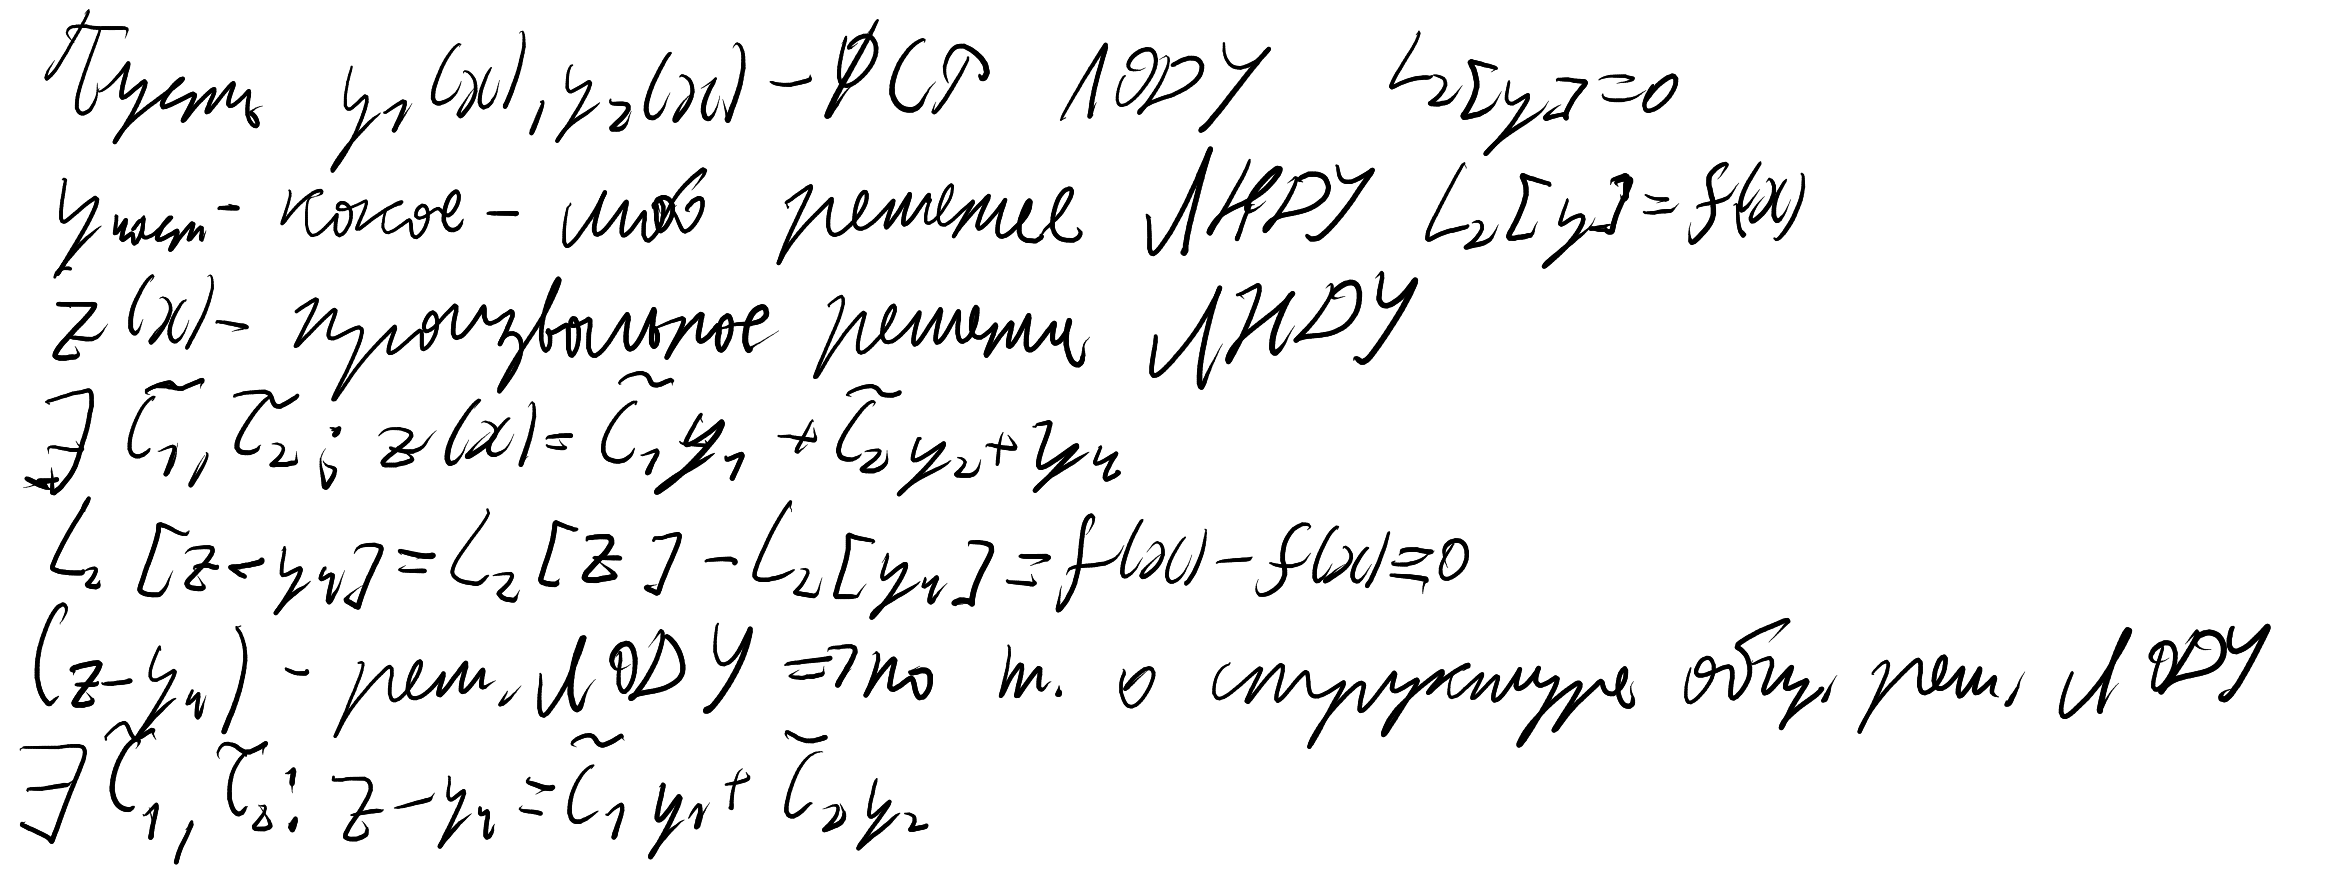 Пусть y₁(x), y₂(x) – ФСР ЛОДУ L₂[y]=0
yчаст - какое-либо решение ЛНДУ L₂[y]=f(x)
z(x) – произвольное решение ЛНДУ
∃ C̃₁, C̃₂: z(x)= C̃₁y₁ + C̃₂y₂ + yч
L₂[z-yч]=L₂[z]-L₂[yч]=f(x)-f(x)≡0
(z-yч) - реш. ЛОДУ ⇒ по т. о структуре общ. реш. ЛОДУ
∃ C̃₁, C̃₂: z-yч = C̃₁y₁ + C̃₂y₂